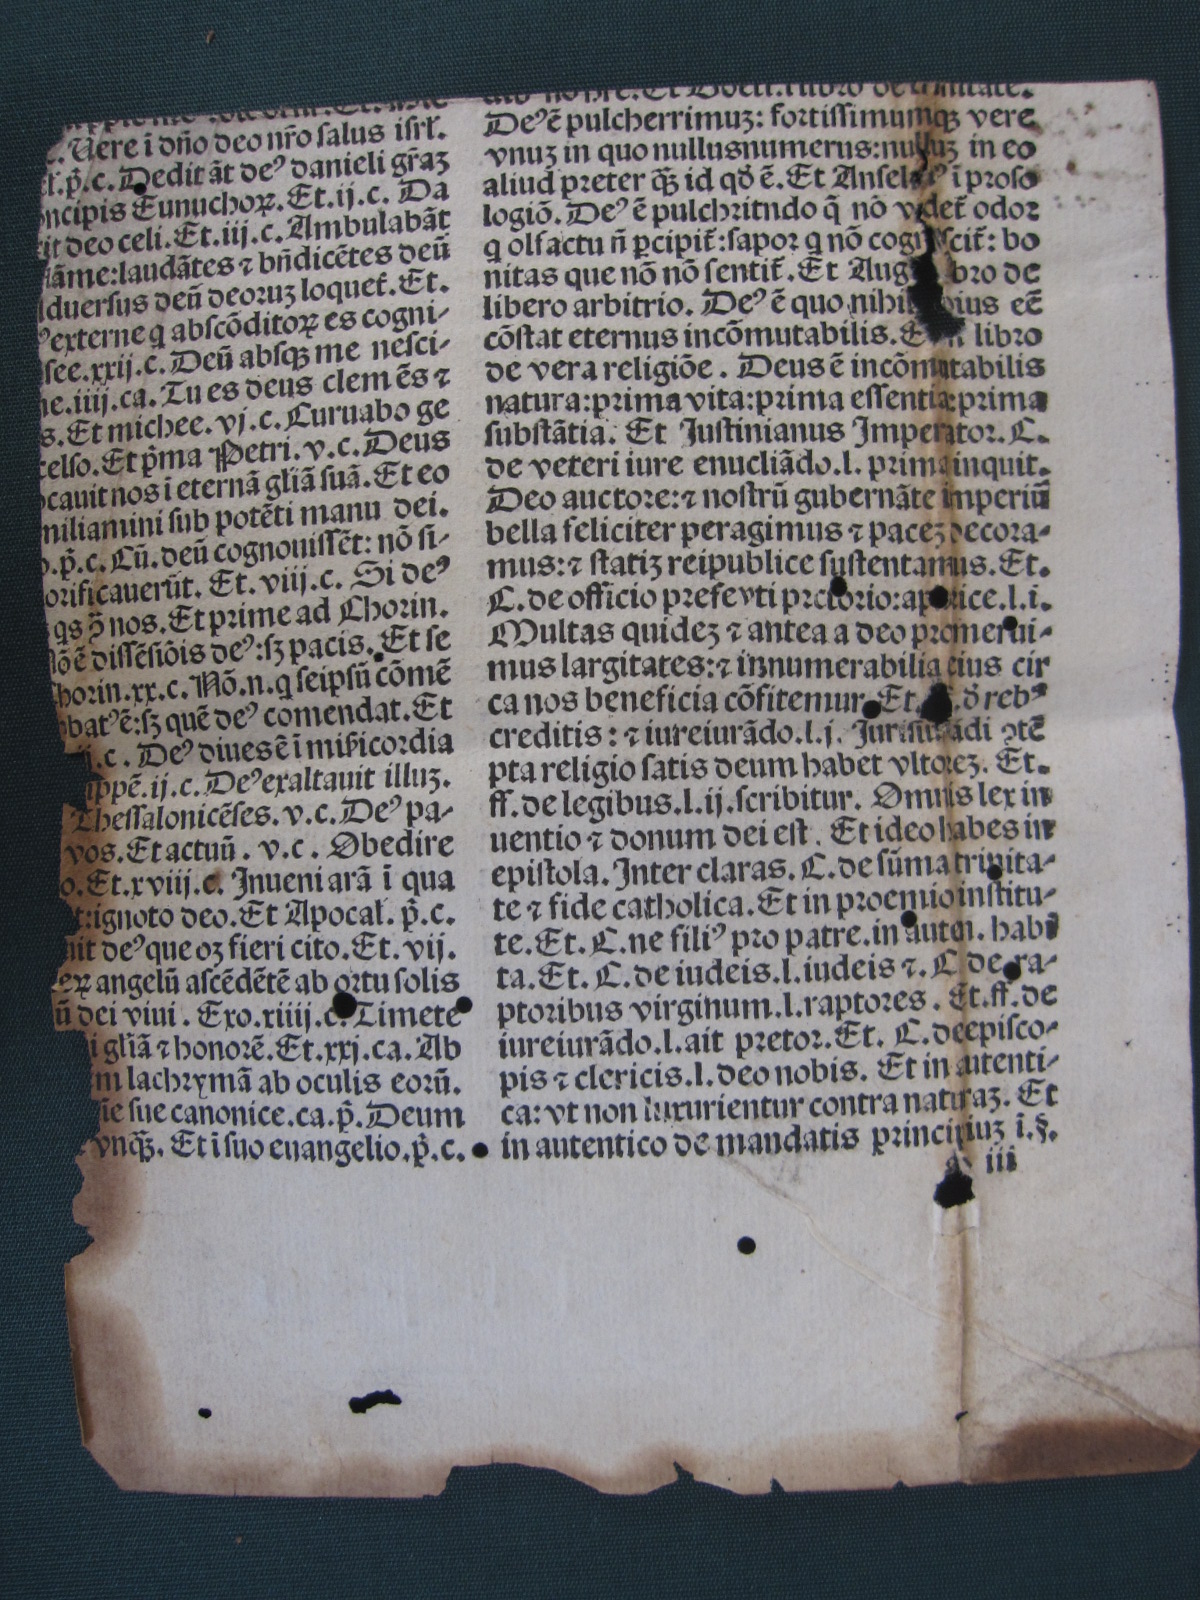 c. Uere ī dño deo nr̃o salus isrł.
eł. p̄. c. Dedit āt deꝰ danieli gr̄aꝫ
principis Eunuchoꝝ. Et. ij. c. Da
it deo celi. Et. iij. c. Ambulabāt
flāme: laudātes ⁊ bñdicētes deū
aduersus deū deoruꝫ loquet̄. Et.
externe q abscōditoꝝ es cogni-
see. xxij. c. Deū absqꝫ me nesci-
ne. iiij. ca. Tu es deus clemēs ⁊
s. Et michee. vj. c. Curuabo ge
celso. Et p̄ma Petri. v. c. Deus
ocauit nos ī eternā gliā suā. Et eo
miliamini sub potēti manu dei.
o. p̄. c. Cū. deū cognouissēt: nō si-
orificauerūt. Et. viij. c. Si deꝰ
qs ꝯ̄ nos. Et prime ad Chorin.
Nō ē dissēsiōis deꝰ: sꝫ pacis. Et se
horin. xx. c. Nō. n. q seipsū cōmē
batꝰ ē: sꝫ quē deꝰ comendat. Et
ij. c. Deꝰ diues ē ī miſicordia
ippē. ij. c. Deꝰ exaltauit illuꝫ.
Thessalonicēses. v. c. Deꝰ pa-
vos. Et actuū. v. c. Obedire
o. Et. xviij. c. Inueni arā ī qua
t: ignoto deo. Et Apocał. p̄. c.
uit deꝰ que oꝫ fieri cito. Et. vij.
angelū ascēdētē ab ortu solis
ū dei viui. Exo. xiiij. c. Timete
i gliā ⁊ honorē. Et. xxj. ca. Ab
m lachrymā ab oculis eorū.
ie sue canonice. ca. p̄. Deum
vnqꝫ̄. Et ī suo euangelio. p̄. c.
Deꝰ ē pulcherrimuꝫ: fortissimumqꝫ vere
vnuꝫ in quo nullusnumerus: nulluꝫ in eo
aliud preter qꝫ̄ id qd̄ ē. Et Ansel ī proso
logiō. Deꝰ ē pulchritndo q̄ nō videt̄ odor
q olfactu n̄ ꝑcipit̄: sapor q nō cognoscit̄: bo
nitas que nō nō sentit̄. Et Aug bro de
libero arbitrio. Deꝰ ē quo nihil eē
cōstat eternus incōmutabilis. Et libro
de vera religiōe. Deus ē incōmutabilis
natura: prima vita: prima essentia: prima
substātia. Et Justinianus Imperator. C.
de veteri iure enucliādo. l. prima inquit.
Deo auctore: ⁊ nostrū gubernāte imperiū
bella feliciter peragimus ⁊ paceꝫ decora-
mus: ⁊ statiꝫ reipublice sustentamus. Et.
C. de officio prefevti pretorio: ap rice. l. i.
Multas quideꝫ ⁊ antea a deo promerui-
mus largitates: ⁊ innumerabilia eius cir
ca nos beneficia cōfitemur. Et. C. ď rebꝰ
creditis: ⁊ iureiurādo. l. j. Jurisiurādi ꝯtē
pta religio satis deum habet vltoreꝫ. Et.
ff. de legibus. l. ij. scribitur. Omnis lex in
uentio ⁊ donum dei est. Et ideo habes in
epistola. Inter claras. C. de sūma trinita-
te ⁊ fide catholica. Et in proemio institu-
te. Et. C. ne filiꝰ pro patre. in auten. habi
ta. Et. C. de iudeis. l. iudeis ⁊. C. de ra-
ptoribus virginum. l. raptores. Et. ff. de
iureiurādo. l. ait pretor. Et. C. de episco-
pis ⁊ clericis. l. deo nobis. Et in autenti-
ca: vt non luxurientur contra naturaꝫ. Et
in autentico de mandatis principiuꝫ i. §.
a iii